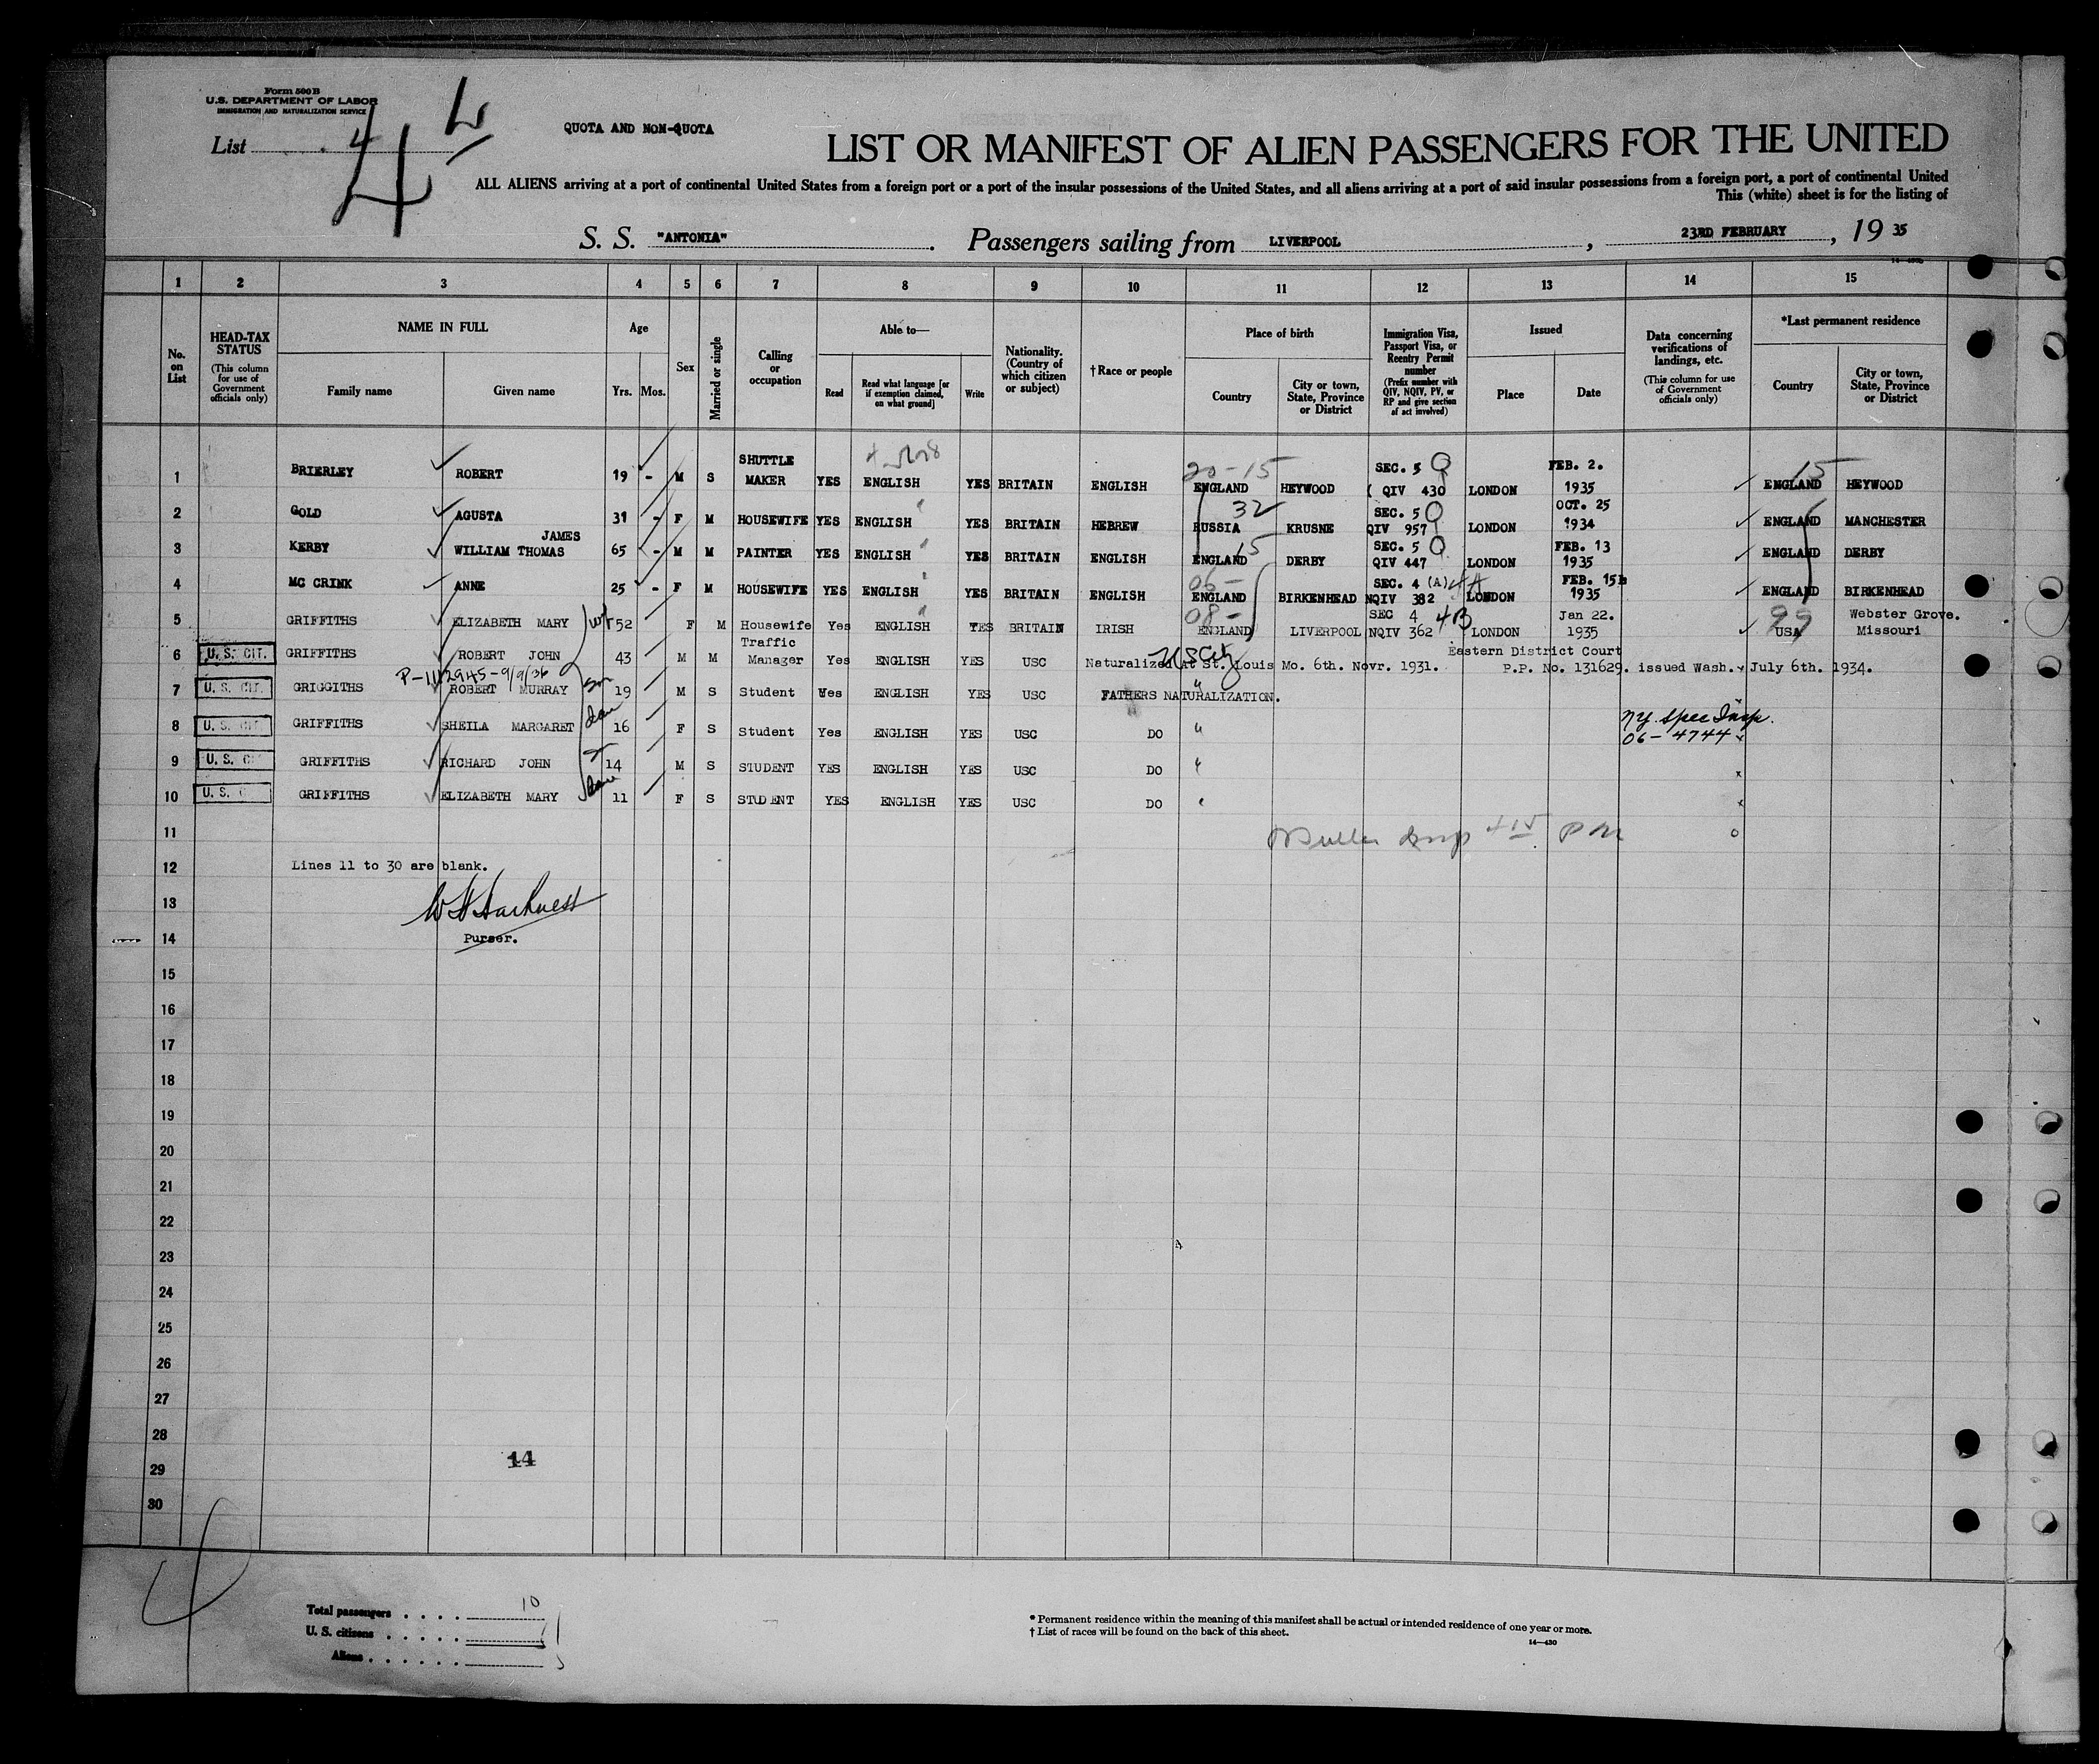 Form 500 B
U.S. DEPARTMENT OF LABOR
IMMIGRATION AND NATURALIZATION SERVICE
List 4
4
4
QUOTA AND NON-QUOTA
LIST OR MANIFEST OF ALIEN PASSENGERS FOR THE UNITED
ALL ALIENS arriving at a port of continental United States from a foreign port or a port of the insular possessions of the United States, and all aliens arriving at a port of said insular possessions from a foreign port, a port of continental United
This (white) sheet is for the listing of
S. S. "ANTONIA". Passengers sailing from LIVERPOOL, 23RD FEBRUARY, 19 35
1 2 3 4 5 6 7 8 9 10 11 12 13 14 15
No. on List
HEAD-TAX STATUS (This column for use of Government officials only)
NAME IN FULL Family name Given name
Age Yrs. Mos.
Sex
Married or single
Calling or occupation
Able to— Read Read what language [or if exemption claimed, on what ground] Write
Nationality. (Country of which citizen or subject)
†Race or people
Place of birth Country City or town, State, Province or District
Immigration Visa, Passport Visa, or Reentry Permit number (Prefix number with QIV, NQIV, PV, or RP and give section of act involved)
Issued Place Date
Data concerning verifications of landings, etc. (This column for use of Government officials only)
*Last permanent residence Country City or town, State, Province or District
SHUTTLE 20-15 SEC. 5 Q FEB. 2. 15
1 BRIERLEY ROBERT 19 - M S MAKER YES ENGLISH YES BRITAIN ENGLISH ENGLAND HEYWOOD ( QIV 430 LONDON 1935 ENGLAND HEYWOOD
32 SEC. 5 Q OCT. 25
2 GOLD AGUSTA 31 - F M HOUSEWIFE YES ENGLISH YES BRITAIN HEBREW RUSSIA KRUSNE QIV 957 LONDON 1934 ENGLAND MANCHESTER
JAMES 15 SEC. 5 Q FEB. 13
3 KERBY WILLIAM THOMAS 65 - M M PAINTER YES ENGLISH YES BRITAIN ENGLISH ENGLAND DERBY QIV 447 LONDON 1935 ENGLAND DERBY
06- SEC. 4 (A) 4A FEB. 15
4 MC CRINK ANNE 25 - F M HOUSEWIFE YES ENGLISH YES BRITAIN ENGLISH ENGLAND BIRKENHEAD NQIV 382 LONDON 1935 ENGLAND BIRKENHEAD
08- SEC 4 4B Jan 22. 99 Webster Grove.
5 GRIFFITHS ELIZABETH MARY 52 F M Housewife Yes ENGLISH YES BRITAIN IRISH ENGLAND LIVERPOOL NQIV 362 LONDON 1935 USA Missouri
Traffic US City Eastern District Court
6 U. S. CIT. GRIFFITHS ROBERT JOHN 43 M M Manager Yes ENGLISH YES USC Naturalized At St. Louis Mo. 6th. Novr. 1931. P.P. No. 131629. issued Wash. July 6th. 1934.
P-112945-9/9/36
7 U. S. CIT. GRIGGITHS ROBERT MURRAY son 19 M S Student Wes ENGLISH YES USC FATHERS NATURALIZATION.
8 U. S. CIT GRIFFITHS SHEILA MARGARET dau 16 F S Student Yes ENGLISH YES USC DO " NY. Spec Insp.
06-4744
9 U. S. CI GRIFFITHS RICHARD JOHN 14 M S STUDENT YES ENGLISH YES USC DO " x
10 U. S. C GRIFFITHS ELIZABETH MARY dau 11 F S STUDENT YES ENGLISH YES USC DO " x
11
12 Lines 11 to 30 are blank.
13 W H Harkness
14 Purser.
15
16
17
18
19
20
21
22
23
24
25
26
27
28
29 14
30
Total passengers . . . . 10
U. S. citizens . . . . .
Aliens . . . . . .
* Permanent residence within the meaning of this manifest shall be actual or intended residence of one year or more.
† List of races will be found on the back of this sheet.
14—430